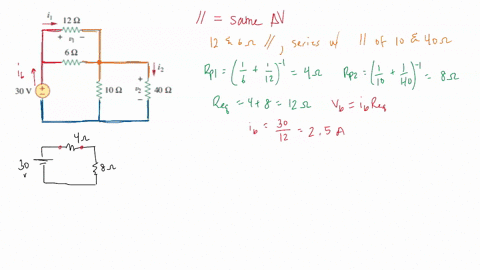 i₁ 12 Ω
+ v₁ −
6 Ω
i_b
30 V
10 Ω
+ v₂ −
40 Ω
i₂
4Ω
30 v
8Ω
// = same ΔV
12 & 6Ω //, series w/ // of 10 & 40Ω
Rp1 = (1/6 + 1/12)⁻¹ = 4Ω Rp2 = (1/10 + 1/40)⁻¹ = 8Ω
Req = 4+8 = 12Ω V_b = i_b Req
i_b = 30/12 = 2.5 A